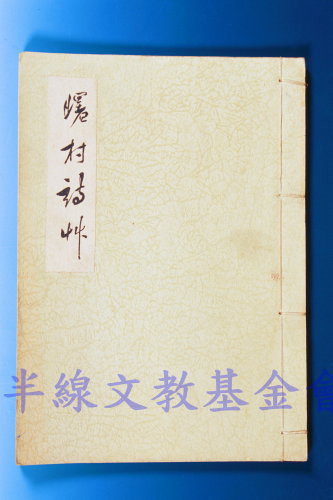 曙村詩艸
半線文教基金會